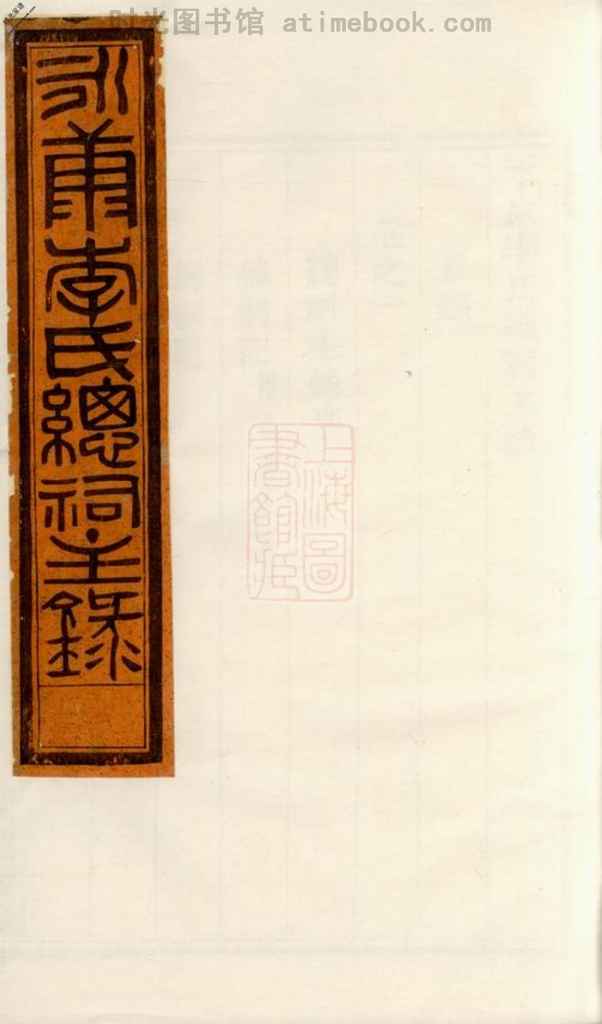 时光图书馆 atimebook.com
永康李氏總祠主錄
上海圖
書館臧